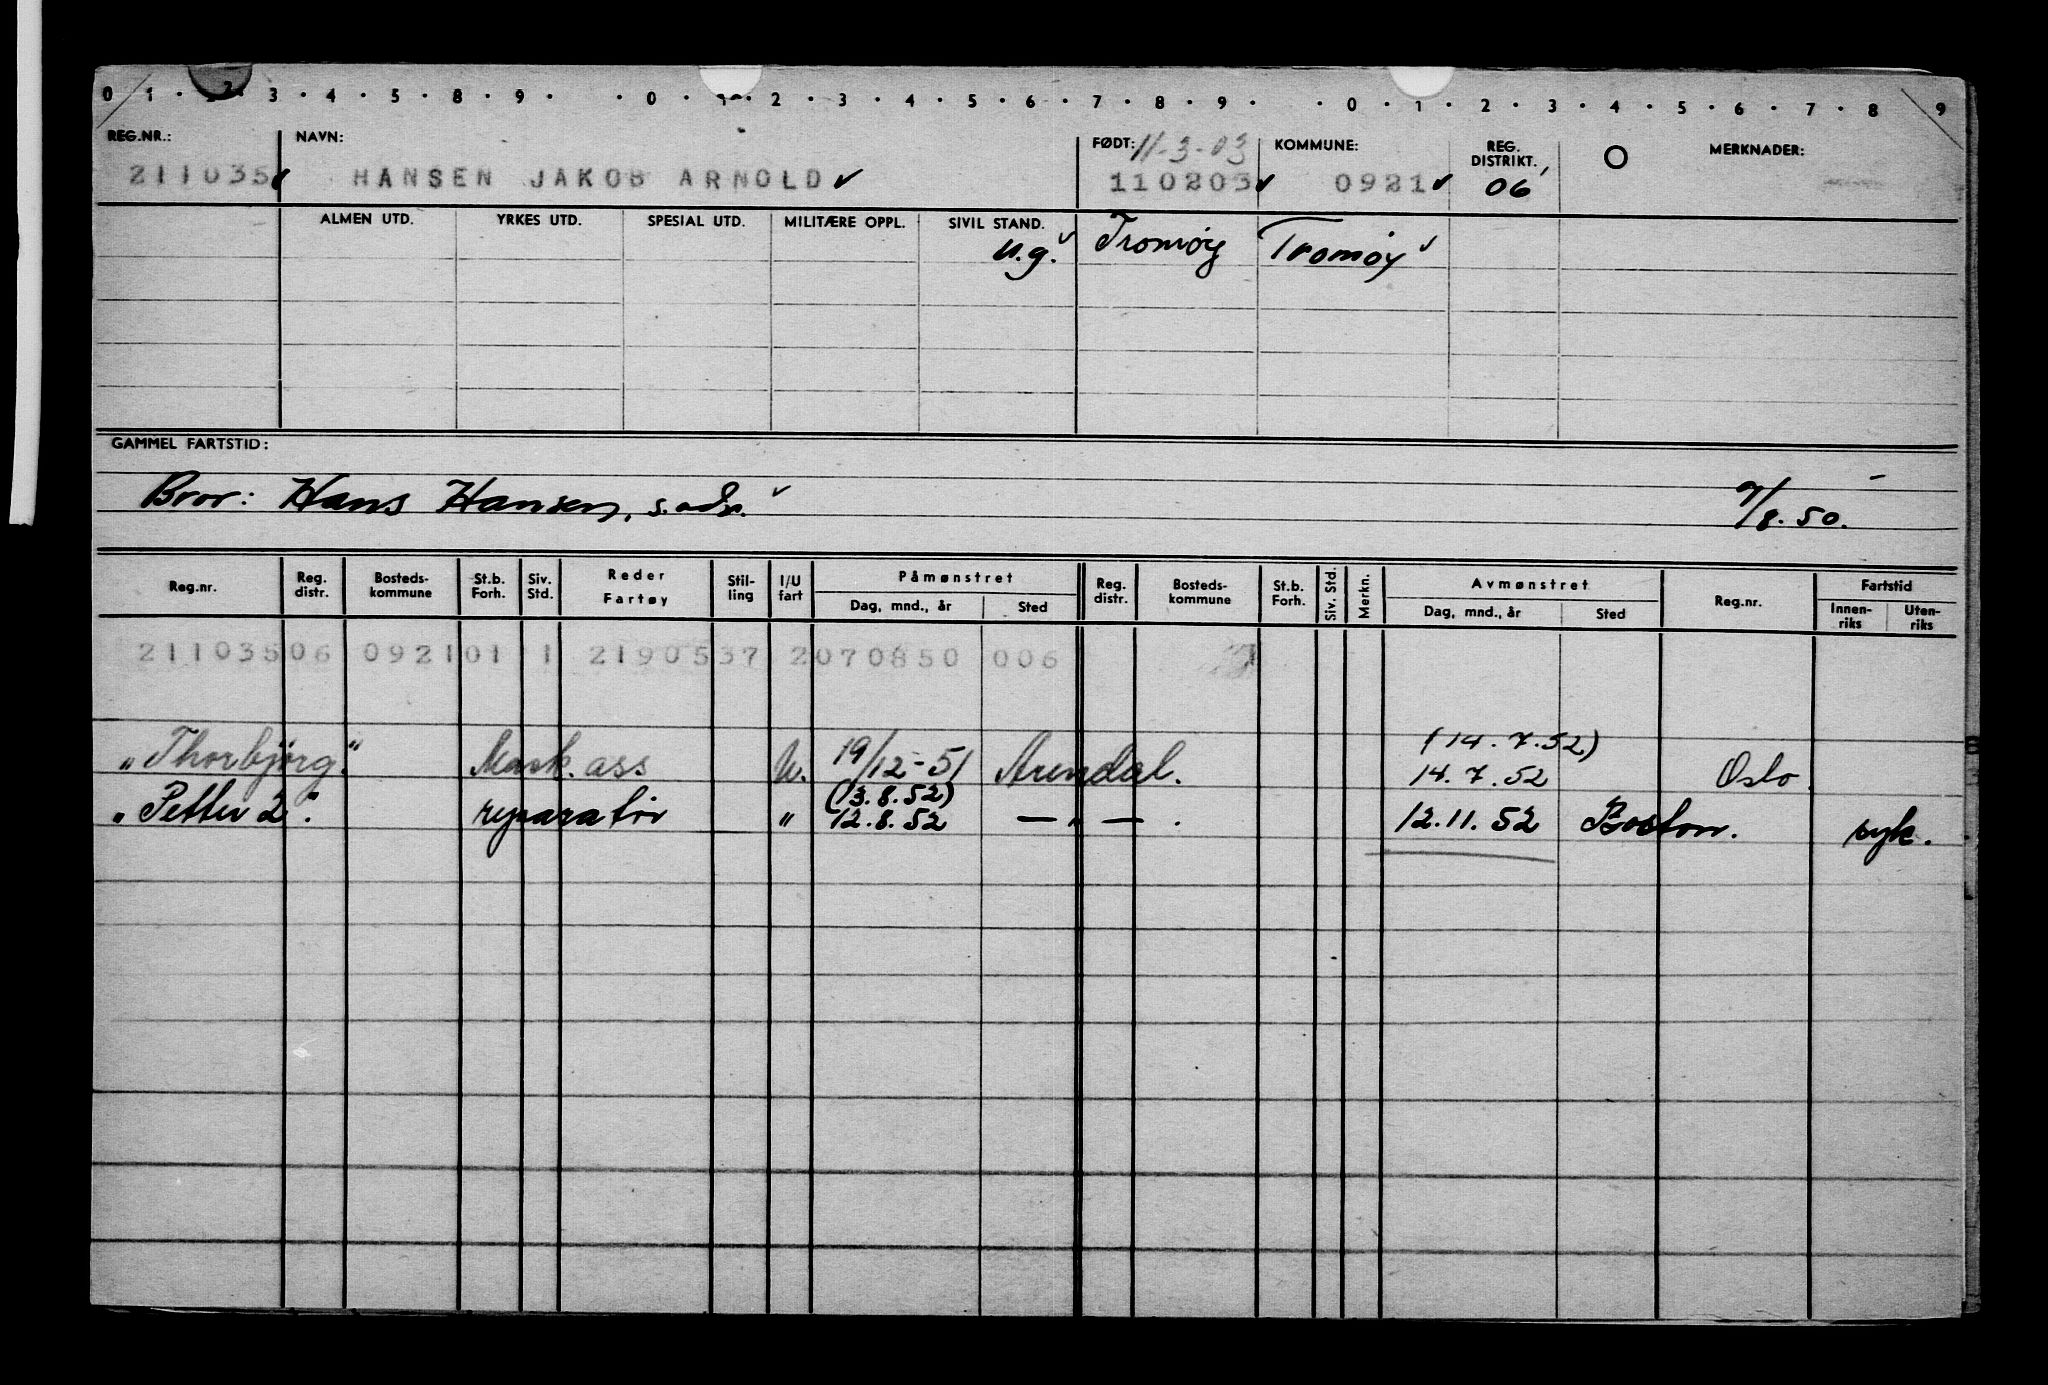 0 1 · 2 · 3 · 4 · 5 · 8 · 9 · · 0 · 1 · 2 · 3 · 4 · 5 · 6 · 7 · 8 · 9 · · 0 · 1 · 2 · 3 · 4 · 5 · 6 · 7 · 8 9
REG.NR.: NAVN: FØDT: 11-3-03 KOMMUNE: REG. DISTRIKT. MERKNADER:
211035 HANSEN JAKOB ARNOLD 110203 0921 06
ALMEN UTD. YRKES UTD. SPESIAL UTD. MILITÆRE OPPL. SIVIL STAND.
u.g. Tromøy Tromøy
GAMMEL FARTSTID:
Bror: Hans Hansen, s. adr. 7/8.50.
Reg.nr. Reg. distr. Bosteds- kommune St.b. Forh. Siv. Std. Reder Fartøy Stil- ling I/U fart Påmønstret Reg. distr. Bosteds- kommune St.b. Forh. Siv. Std. Merkn. Avmønstret Reg.nr. Fartstid
Dag, mnd., år Sted Dag, mnd., år Sted Innen- riks Uten- riks
211035 06 0921 01 1 2190537 2070850 006
(14.7.52)
"Thorbjørg" Mask. ass U. 19/12-51 Arendal. 14.7.52 Oslo.
(13.8.52)
"Petter 2". reparatør " 12.8.52 — " — . 12.11.52 Boston. syk.